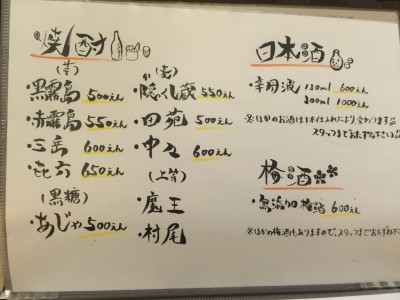 焼酎
(芋)
・黒霧島 500えん
・赤霧島 550えん
・三岳 600えん
・㐂六 650えん
(黒糖)
・あじゃ 500えん
(麦)
・隠くし蔵 550えん
・田苑 500えん
・中々 600えん
(上等)
・魔王
・村尾
日本酒
・辛丹波 180ml 600えん
300ml 1000えん
※ほかのお酒は1本仕入れにより、変わります
スタッフまでおたずね下さい
梅酒
・無添加梅酒 600えん
・ほかの梅酒もありますので、スタッフまでおたずね下